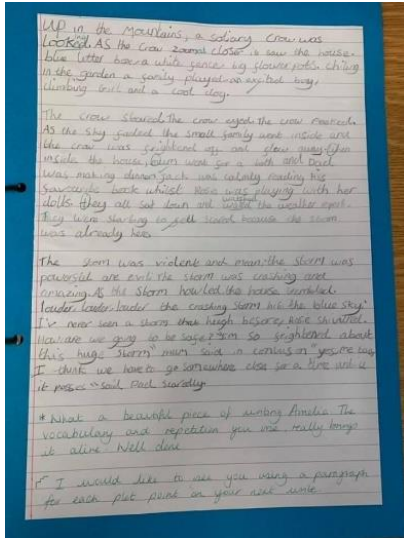 Up in the Mountains, a solitary crow was
looked. As the crow zoomed closer is saw the house.
blue letter box, a white fence big flower pots. Chiling
in the garden a family played. an excited boy,
climbing and a cool dog.
The crow stared. the crow eyed. the crow
As the sky faded the small family went inside and
the crow was frightend and flew away. When
inside the house, mum went for a bath and Dad
was making dinner. Jack was calmly reading his
favourite book whilst Rosie was playing with her
dolls. they all sat down and watched the weather report.
They were starting to feel scared because the storm
was already here.
The storm was violent and mean. the storm was
powerful and evil. the storm was crashing and
amazing. As the storm howled the house rumbled
louder, louder, louder the crashing storm hit the blue sky.
I've never seen a storm that heigh before, Rose shouted.
How are we going to be safe? "I'm so frightend about
this huge storm" mum said in confusion "yes me too,
I think we have to go somewhere else for a time until
it passes" said, Dad scaredly
* What a beautiful piece of writing Amelia. The
vocabulary and repetition you use really brings
it alive. Well done
I would like to see you using a paragraph
for each plot point in your next write